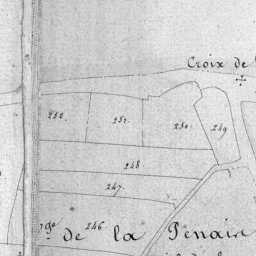 Croix de
252.
251.
250.
249
248
247.
246
de la Penair